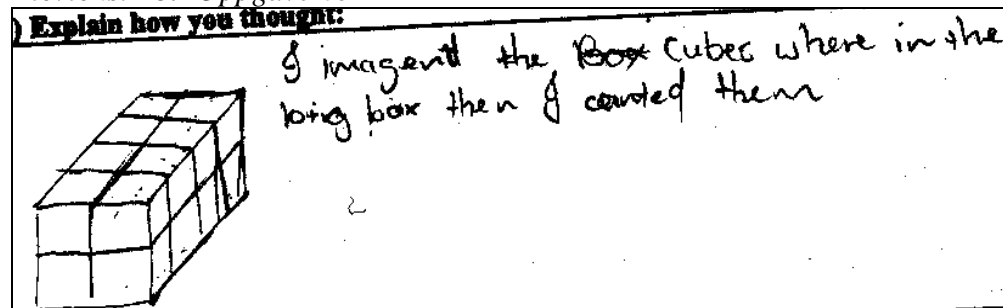 ) Explain how you thought:
I imagent the Box cubes where in the
big box then I counted them